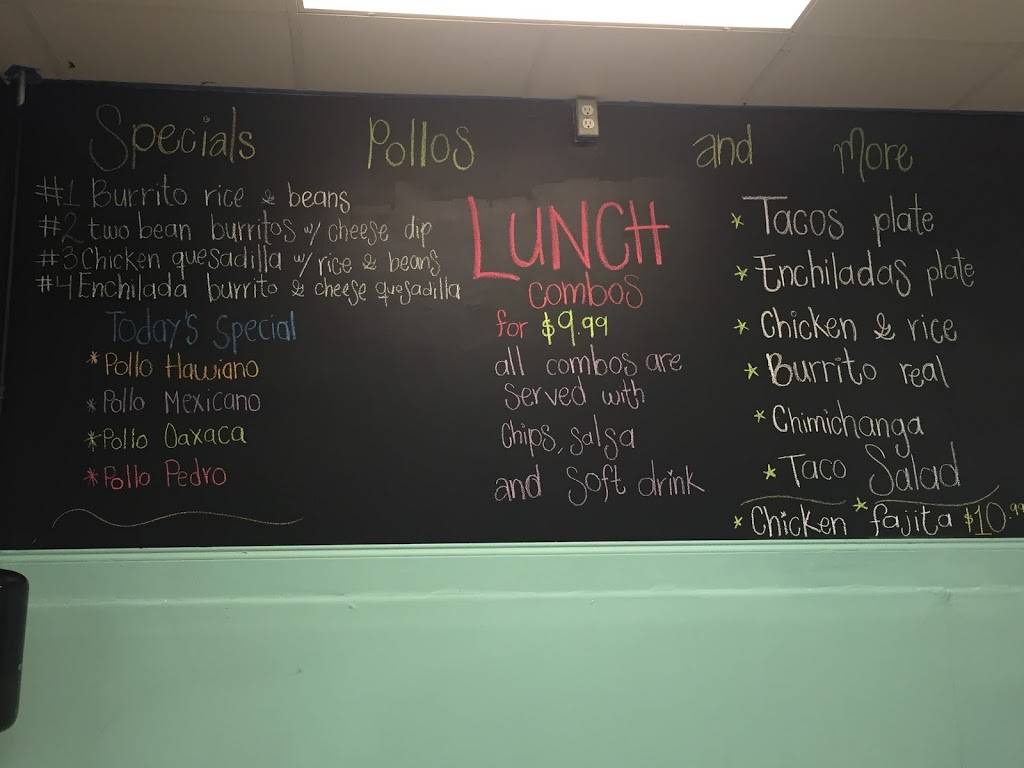 Specials Pollos and More
#1 Burrito rice & beans
#2 two bean burritos w/ cheese dip
#3 Chicken quesadilla w/ rice & beans
#4 Enchilada burrito & cheese quesadilla
Today's Special
*Pollo Hawiano
*Pollo Mexicano
*Pollo Oaxaca
*Pollo Pedro
LUNCH
combos
for $9.99
all combos are
served with
chips, salsa
and soft drink
* Tacos plate
* Enchiladas plate
* Chicken & rice
* Burrito real
* Chimichanga
* Taco Salad
* Chicken * fajita $10.99